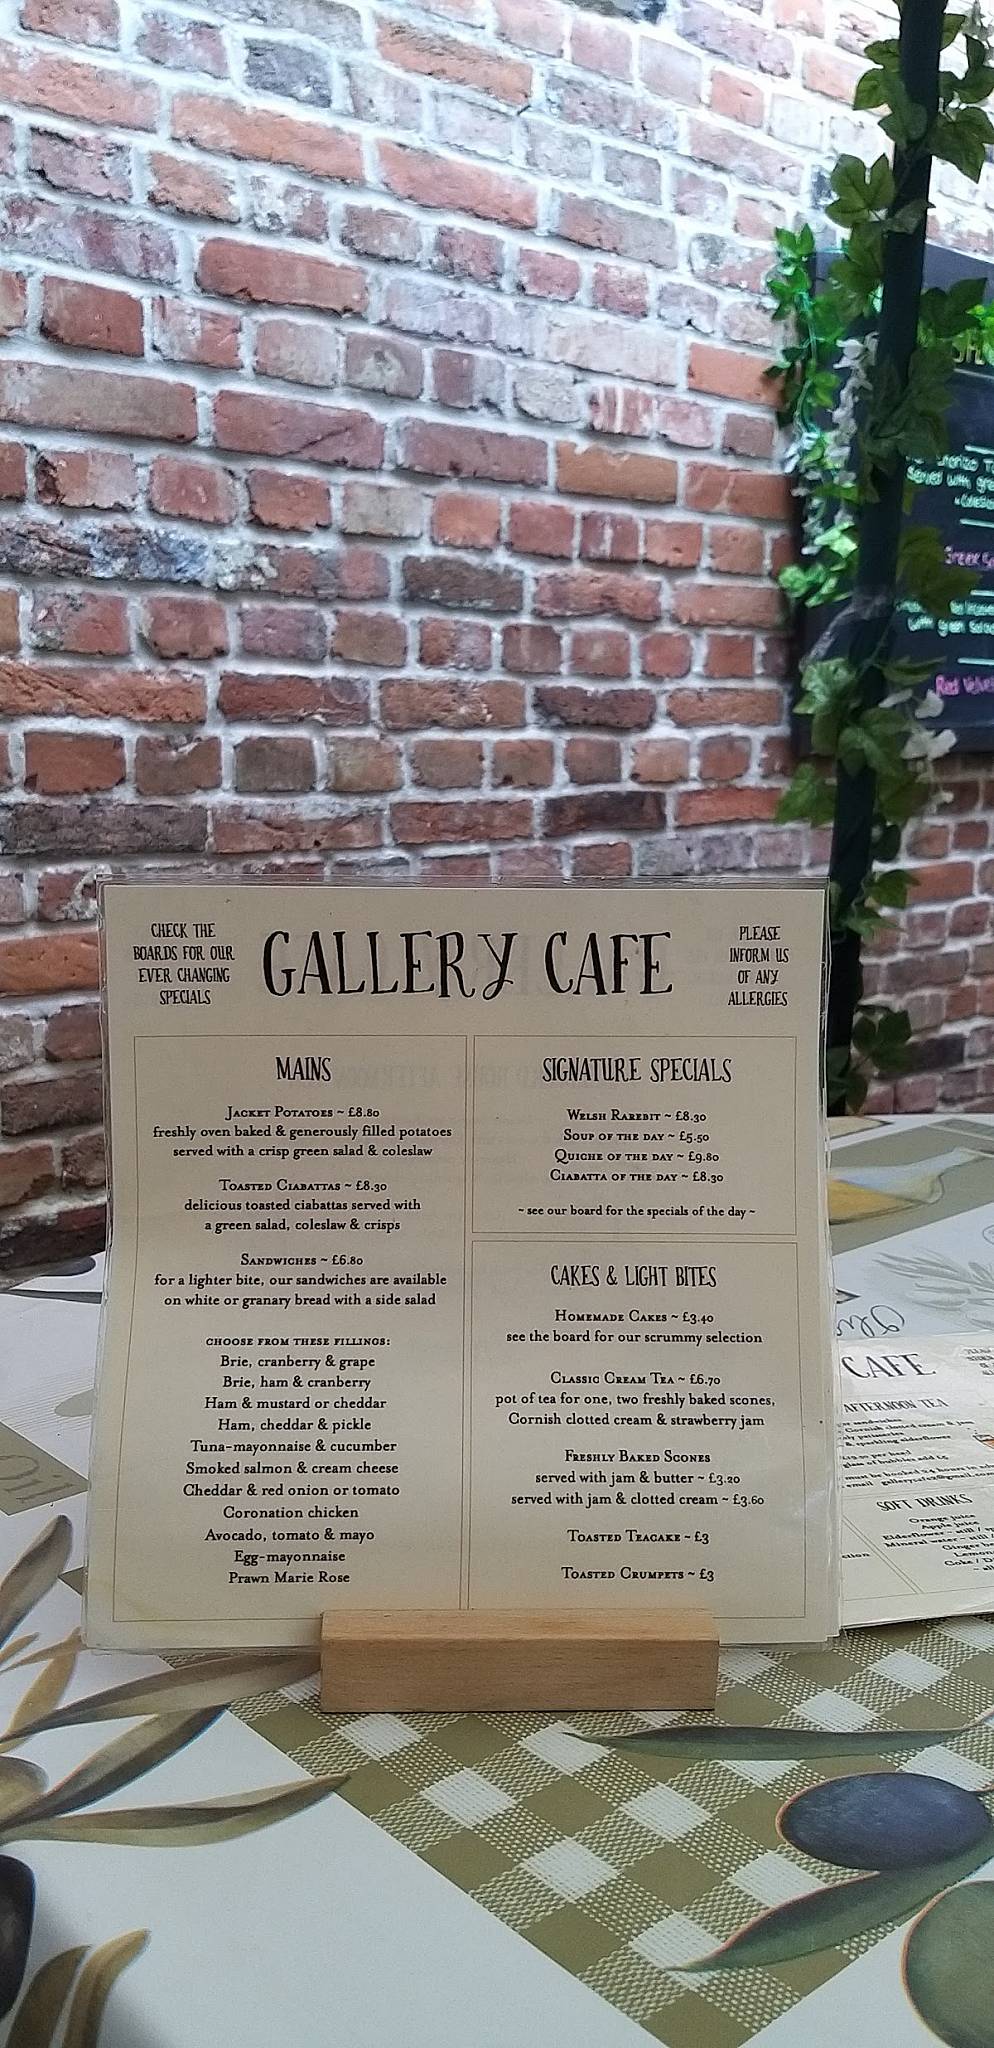 CHECK THE
BOARDS FOR OUR
EVER CHANGING
SPECIALS
GALLERY CAFE
PLEASE
INFORM US
OF ANY
ALLERGIES
MAINS
JACKET POTATOES ~ £8.80
freshly oven baked & generously filled potatoes
served with a crisp green salad & coleslaw
TOASTED CIABATTAS ~ £8.30
delicious toasted ciabattas served with
a green salad, coleslaw & crisps
SANDWICHES ~ £6.80
for a lighter bite, our sandwiches are available
on white or granary bread with a side salad
CHOOSE FROM THESE FILLINGS:
Brie, cranberry & grape
Brie, ham & cranberry
Ham & mustard or cheddar
Ham, cheddar & pickle
Tuna-mayonnaise & cucumber
Smoked salmon & cream cheese
Cheddar & red onion or tomato
Coronation chicken
Avocado, tomato & mayo
Egg-mayonnaise
Prawn Marie Rose
SIGNATURE SPECIALS
WELSH RAREBIT ~ £8.30
SOUP OF THE DAY ~ £5.50
QUICHE OF THE DAY ~ £9.80
CIABATTA OF THE DAY ~ £8.30
~ see our board for the specials of the day ~
CAKES & LIGHT BITES
HOMEMADE CAKES ~ £3.40
see the board for our scrummy selection
CLASSIC CREAM TEA ~ £6.70
pot of tea for one, two freshly baked scones,
Cornish clotted cream & strawberry jam
FRESHLY BAKED SCONES
served with jam & butter ~ £3.20
served with jam & clotted cream ~ £3.60
TOASTED TEACAKE ~ £3
TOASTED CRUMPETS ~ £3
Served with
with green
Red
CAFE
AFTERNOON TEA
sandwiches
Cornish clotted cream & jam
& sparkling elderflower
glass of bubbles add £5
must be booked 24 hours in
email
SOFT DRINKS
Orange juice
Apple juice
Elderflower - still /
Mineral water - still /
Ginger
Coke /
Oil